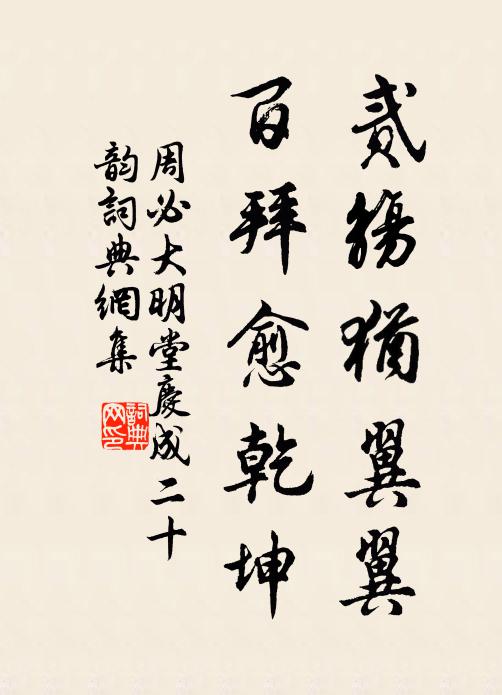 貳觴猶翼翼
百拜愈乾坤
周必大明堂慶成二十
韵詞典網集
詞典网印